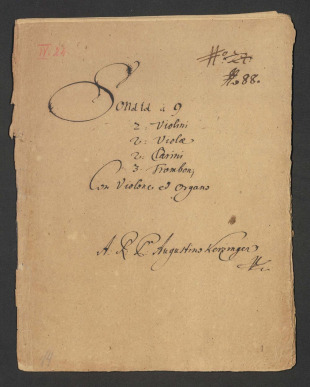 IV. 22.
No 88.
Sonata à 9
2: Violini
2: Violæ
2: Clarini
3: Tromboni
Con Violone ed Organo
A. R. P. Augustino Kerzinger